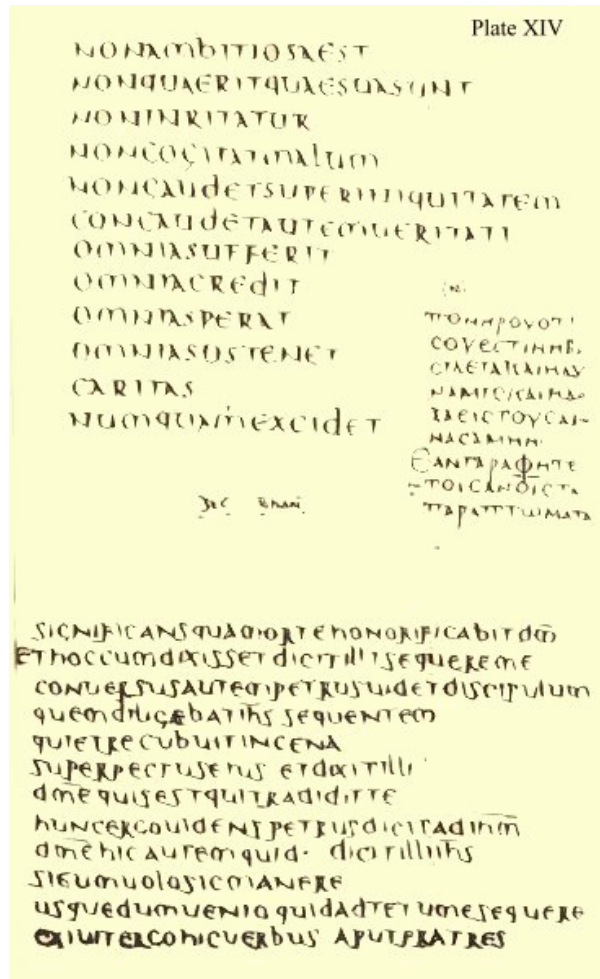 Plate XIV
NONAMBITIOSAEST
NONQUAERITQUAESUASUNT
NONINRITATUR
NONCOGITATMALUM
NONGAUDETSUPERINIQUITATEM
CONGAUDETAUTEMUERITATI
OMNIASUFFERIT
OMNIACREDIT
OMNIASPERAT
OMNIASUSTENET
CARITAS
NUMQUAMEXCIDET
ΠΟΝΗΡΟΥΟΤΙ
ΣΟΥΕΣΤΙΝΗΒ
ΣΙΛΕΙΑΚΑΙΗΔΥ
ΝΑΜΙΣΚΑΙΗΔΟ
ΞΑΕΙΣΤΟΥΣΑΙ
ΝΑΣΑΜΗΝ
ΕΑΝΓΑΡΑΦΗΤΕ
ΤΟΙΣΑΝΟΙΣΤΑ
ΠΑΡΑΠΤΩΜΑΤΑ
SIGNIFICANSQUAMORTEHONORIFICABITDM
ETHOCCUMDIXISSETDICITILLISEQUEREME
CONUERSUSAUTEMPETRUSUIDETDISCIPULUM
QUEMDILIGEBATIHSSEQUENTEM
QUIETRECUBUITINCENA
SUPERPECTUSEIUS ETDIXITILLI
DMEQUISESTQUITRADIDITTE
HUNCERGOUIDENSPETRUSDICITADIHM
DMEHICAUTEMQUID· DICITILLIIHS
SIEUMUOLOSICMANERE
USQUEDUMUENIOQUIDADTETUMESEQUERE
EXIUITERGOHICUERBUS APUTFRATRES